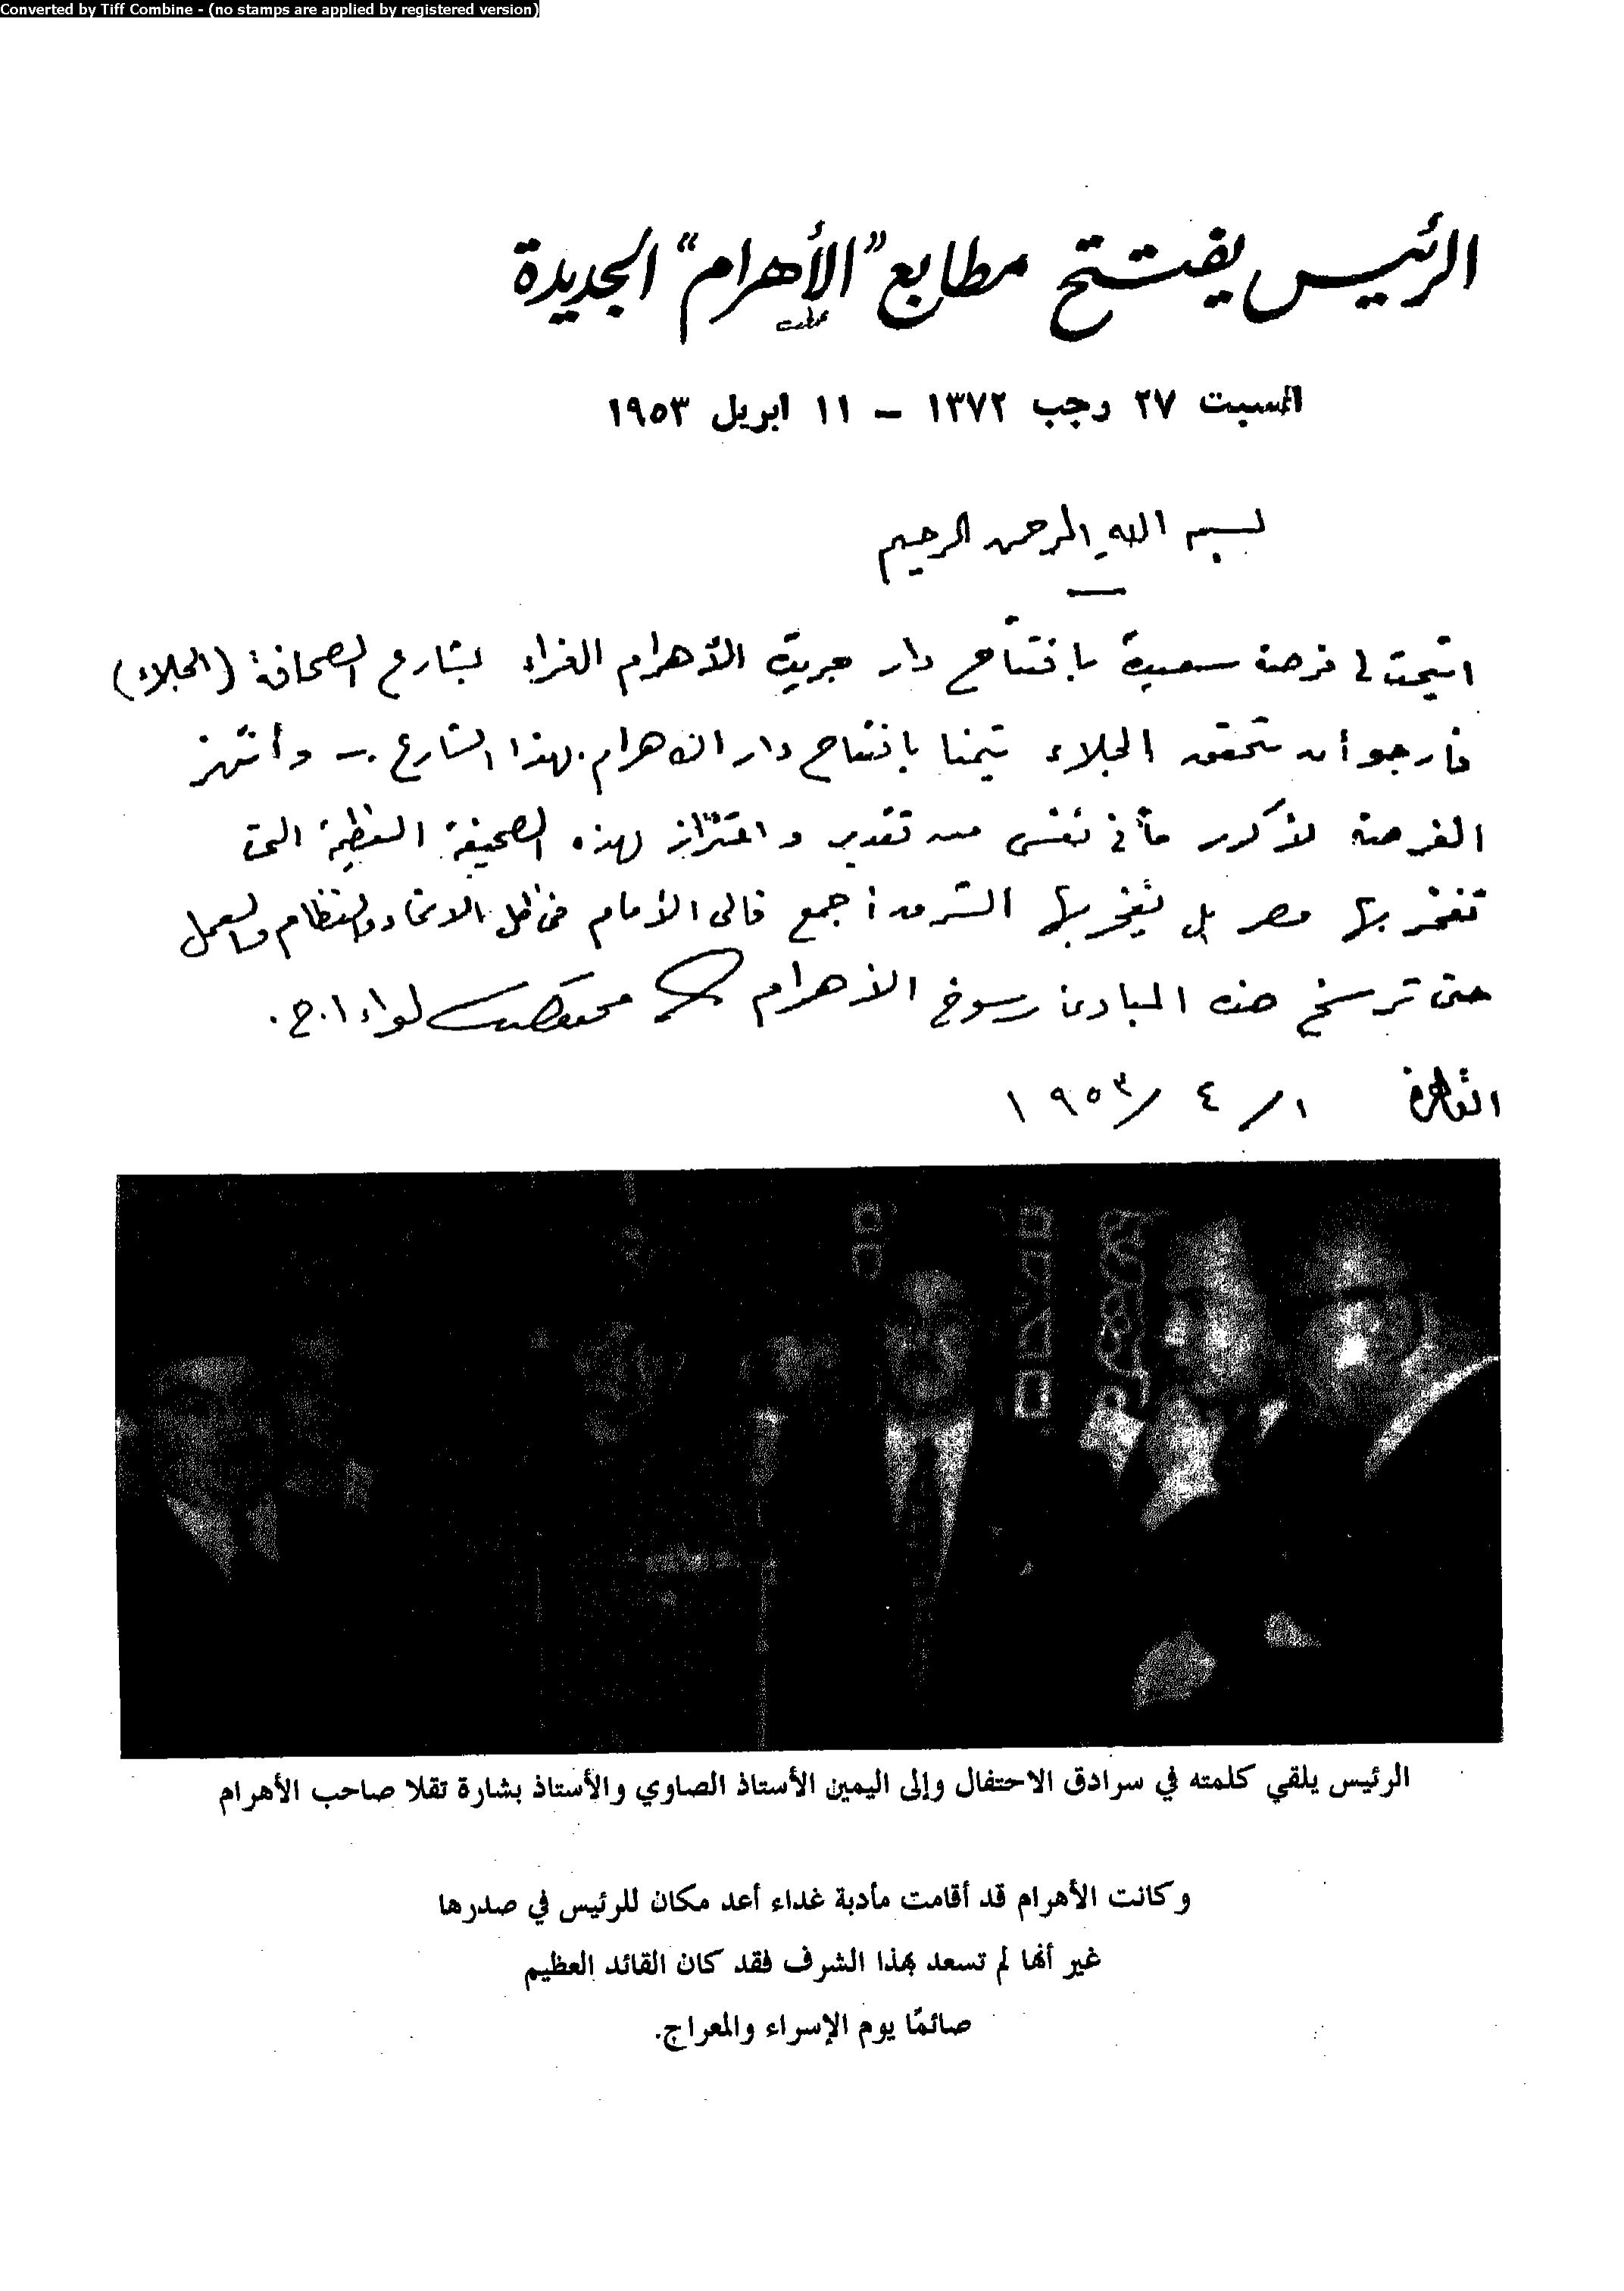 Converted by Tiff Combine - (no stamps are applied by registered version)
الرئيس يفتتح مطابع "الأهرام" الجديدة
السبت ٢٧ رجب ١٣٧٢ – ١١ ابريل ١٩٥٣
بسم الله الرحمن الرحيم
اتيحت لى فرصة سعيدة بافتتاح دار جريدة الأهرام الغراء بشارع الصحافة (الجلاء)
فأرجو أن يتحقق الجلاء تيمنا بافتتاح دار الاهرام بهذا الشارع - وأنتهز
الفرصة لأكرر ما فى نفسى من تقدير واعتزاز بهذه الصحيفة العظيمة التى
تفخر بها مصر بل يفخر بها الشرق أجمع فالى الأمام فى ظل الاتحاد والنظام والعمل
حتى ترسخ هذه المبادئ رسوخ الأهرام لواء ا.ح.
القاهرة ٤ / ١٩٥٣
الرئيس يلقي كلمته في سرادق الاحتفال وإلى اليمين الأستاذ الصاوي والأستاذ بشارة تقلا صاحب الأهرام
وكانت الأهرام قد أقامت مأدبة غداء أعد مكان للرئيس في صدرها
غير أنها لم تسعد بهذا الشرف فقد كان القائد العظيم
صائمًا يوم الإسراء والمعراج.